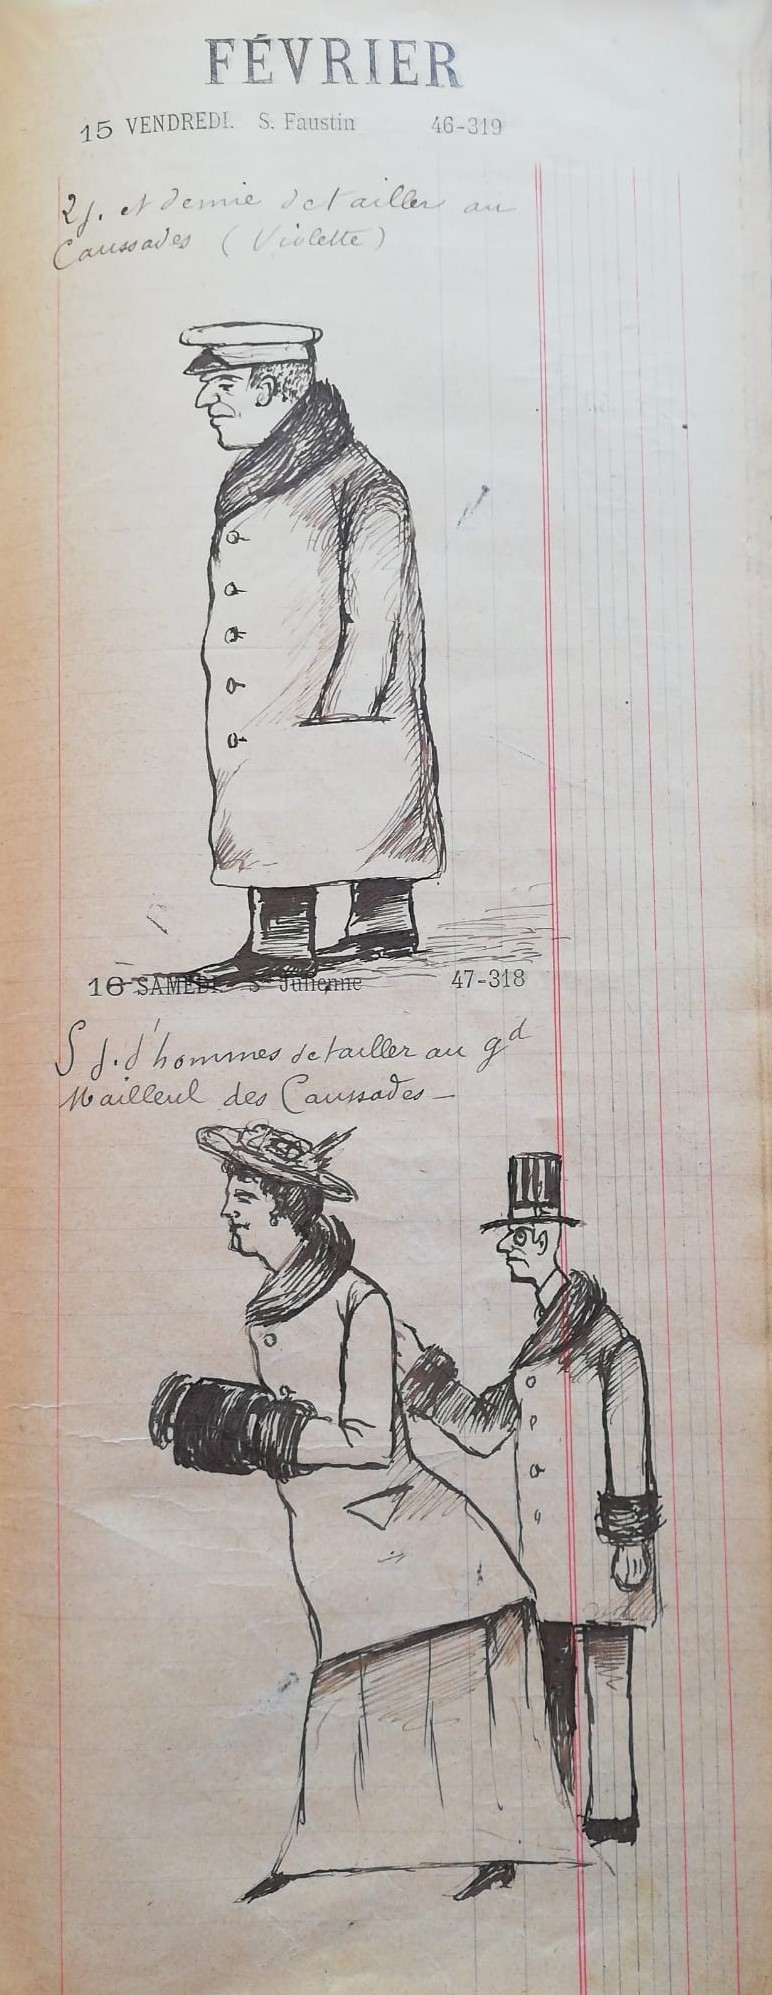 FÉVRIER
15 VENDREDI. S. Faustin 46-319
2 j. et demie de tailler au
Caussades (Violette)
16 SAMEDI. Ste Julienne 47-318
5 j. d'hommes de tailler au gd
Mailleul des Caussades —